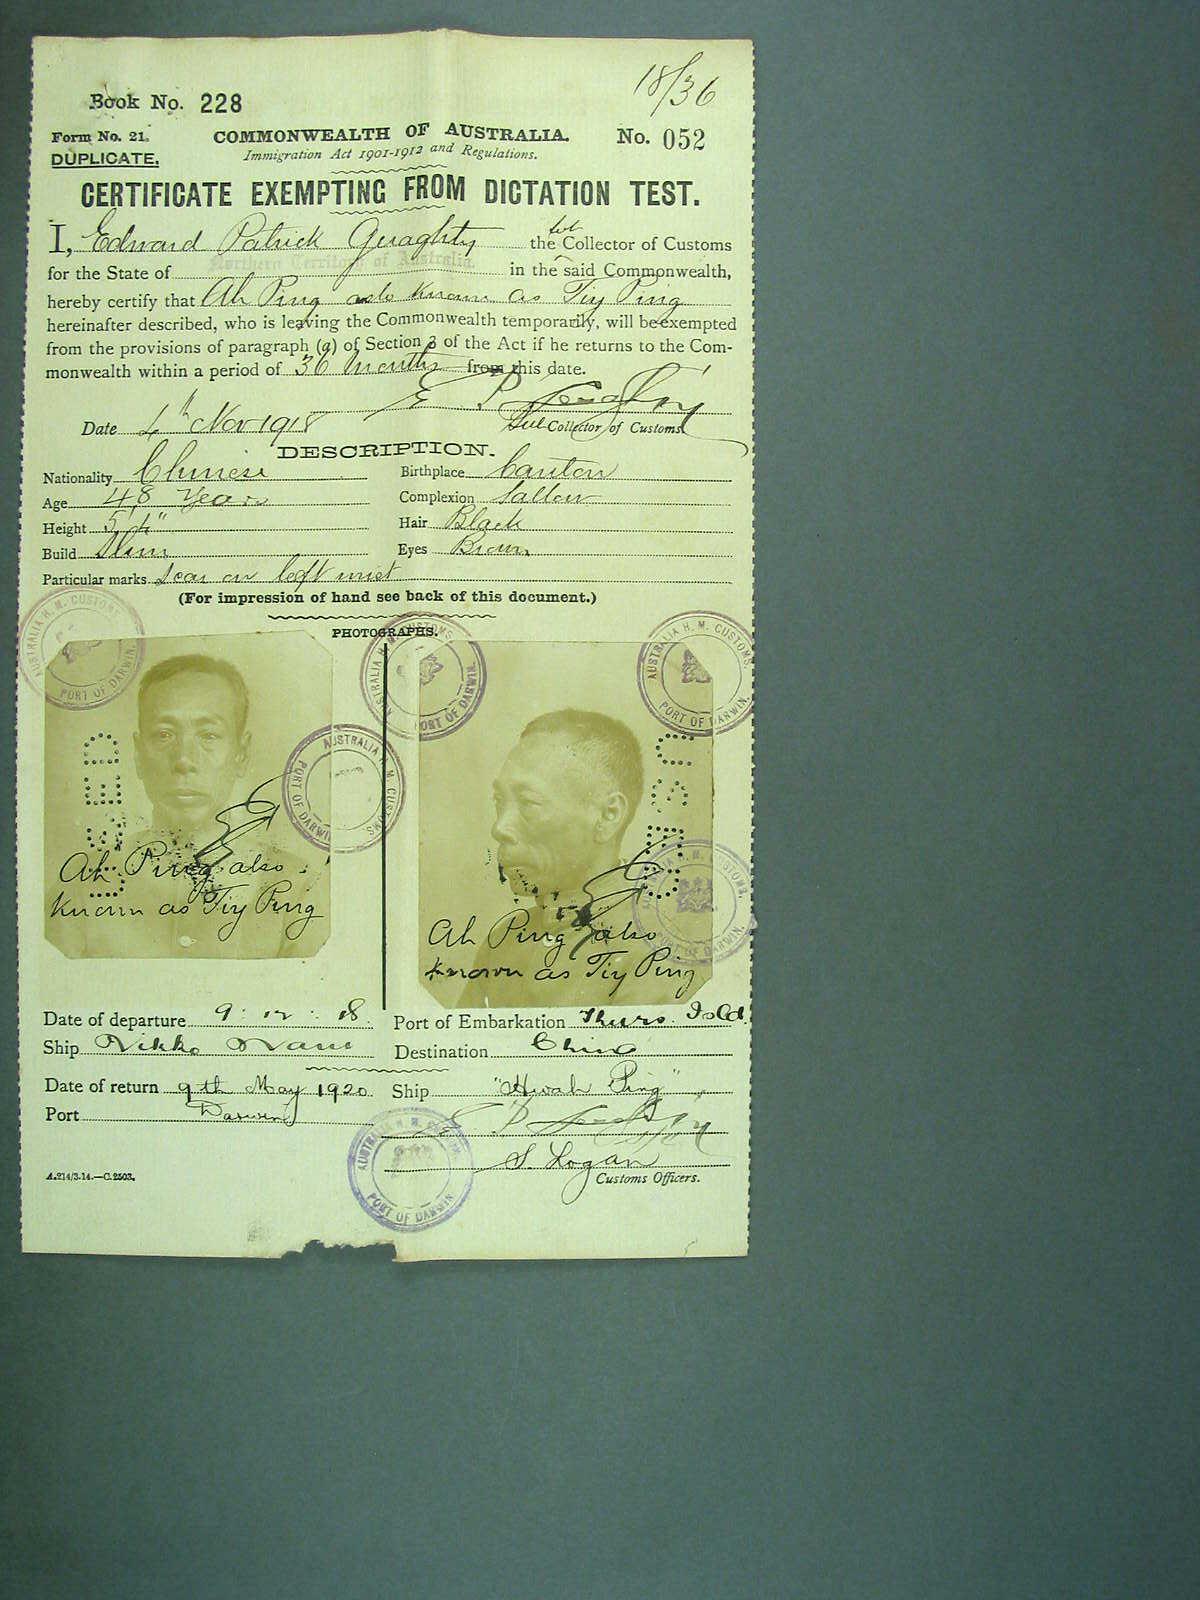 18/36
Book No. 228
Form No. 21. COMMONWEALTH OF AUSTRALIA. No. 052
DUPLICATE. Immigration Act 1901-1912 and Regulations.
CERTIFICATE EXEMPTING FROM DICTATION TEST.
I, Edward Patrick Geraghty the Sub Collector of Customs
for the State of Northern Territory of Australia. in the said Commonwealth,
hereby certify that Ah Ping also known as Tiy Ping
hereinafter described, who is leaving the Commonwealth temporarily, will be exempted
from the provisions of paragraph (a) of Section 3 of the Act if he returns to the Com-
monwealth within a period of 36 Months from this date.
Date 4th Nov 1918 Sub Collector of Customs.
DESCRIPTION.
Nationality Chinese Birthplace Canton
Age 48 Years Complexion Sallow
Height 5' 4" Hair Black
Build Slim Eyes Brown
Particular marks Scar on left wrist
(For impression of hand see back of this document.)
PHOTOGRAPHS.
AUSTRALIA H. M. CUSTOMS. PORT OF DARWIN.
AUSTRALIA H. M. CUSTOMS. PORT OF DARWIN.
AUSTRALIA H. M. CUSTOMS. PORT OF DARWIN.
AUSTRALIA H. M. CUSTOMS PORT OF DARWIN.
Ah Ping also
known as Tiy Ping
Ah Ping also
known as Tiy Ping
AUSTRALIA H. M. CUSTOMS. PORT OF DARWIN.
Date of departure 9: 12: 18. Port of Embarkation Thurs. Isld.
Ship Nikko Maru Destination China
Date of return 9th May 1920 Ship "Hwah Ping"
Port Darwin
S. Logan
Customs Officers.
AUSTRALIA H. M. CUSTOMS PORT OF DARWIN
A.214/3.14.—C.2503.